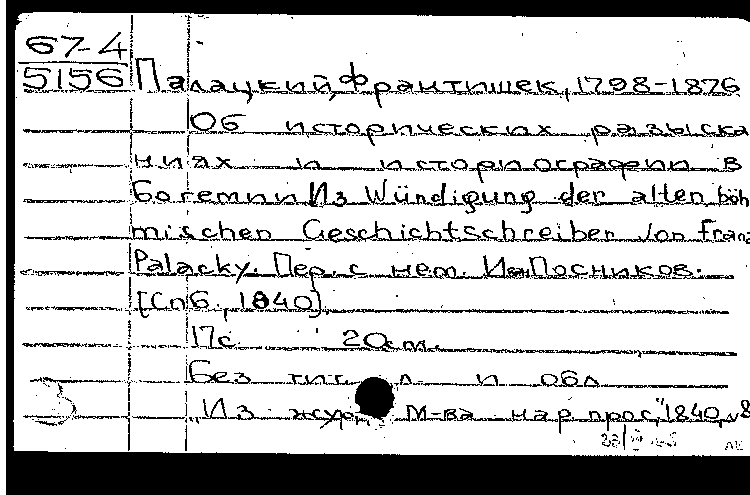 67-4
5156
Палацкий, Франтишек, 1798-1876
Об исторических разыска
ниях и историографии в
Богемии Из Würdigung der alten böh
mischen Geschichtschreiber von Franz
Palacky. Пер. с нем. Ив. Посников.
[Спб., 1840].
17с 20см.
Без тит. л. и обл
3 "Из жур. М-ва нар прос", 1840, 8